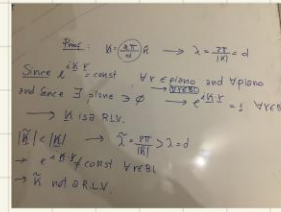 Proof: K = 2π/d n̂ → λ = 2π/|K| = d
Since e^{iK·r} = const ∀r ∈ piano and ∀piano
and since ∃ plane ∋ 0 → e^{iK·r} = 1 ∀r∈BL
→ K is a R.L.V.
|K̃| < |K| → λ̃ = 2π/|K̃| > λ = d
→ e^{iK̃·r} ≠ const ∀r∈BL
→ K̃ not a R.L.V.